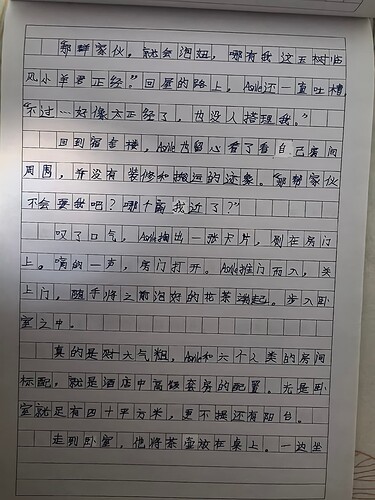 “那群家伙，就会泡妞，哪有我这玉树临
风小羊君正经。”回屋的路上，Aoie还一直吐槽，
“不过…好像太正经了，也没人搭理我。”
回到宿舍楼，Aoie也留心看了看自己房间
周围，并没有装修和搬运的迹象。“那帮家伙
不会耍我吧？哪个离我近了？”
叹了口气，Aoie掏出一张卡片，刷在房门
上。嘀的一声，房门打开。Aoie推门而入，关
上门，随手将之前泡好的花茶端起。步入卧
室之中。
真的是财大气粗，Aoie和六个人类的房间
标配，就是酒店中高级套房的配置。光是卧
室就足有四十平方米，更不提还有阳台。
走到卧室，他将茶壶放在桌上。一边坐